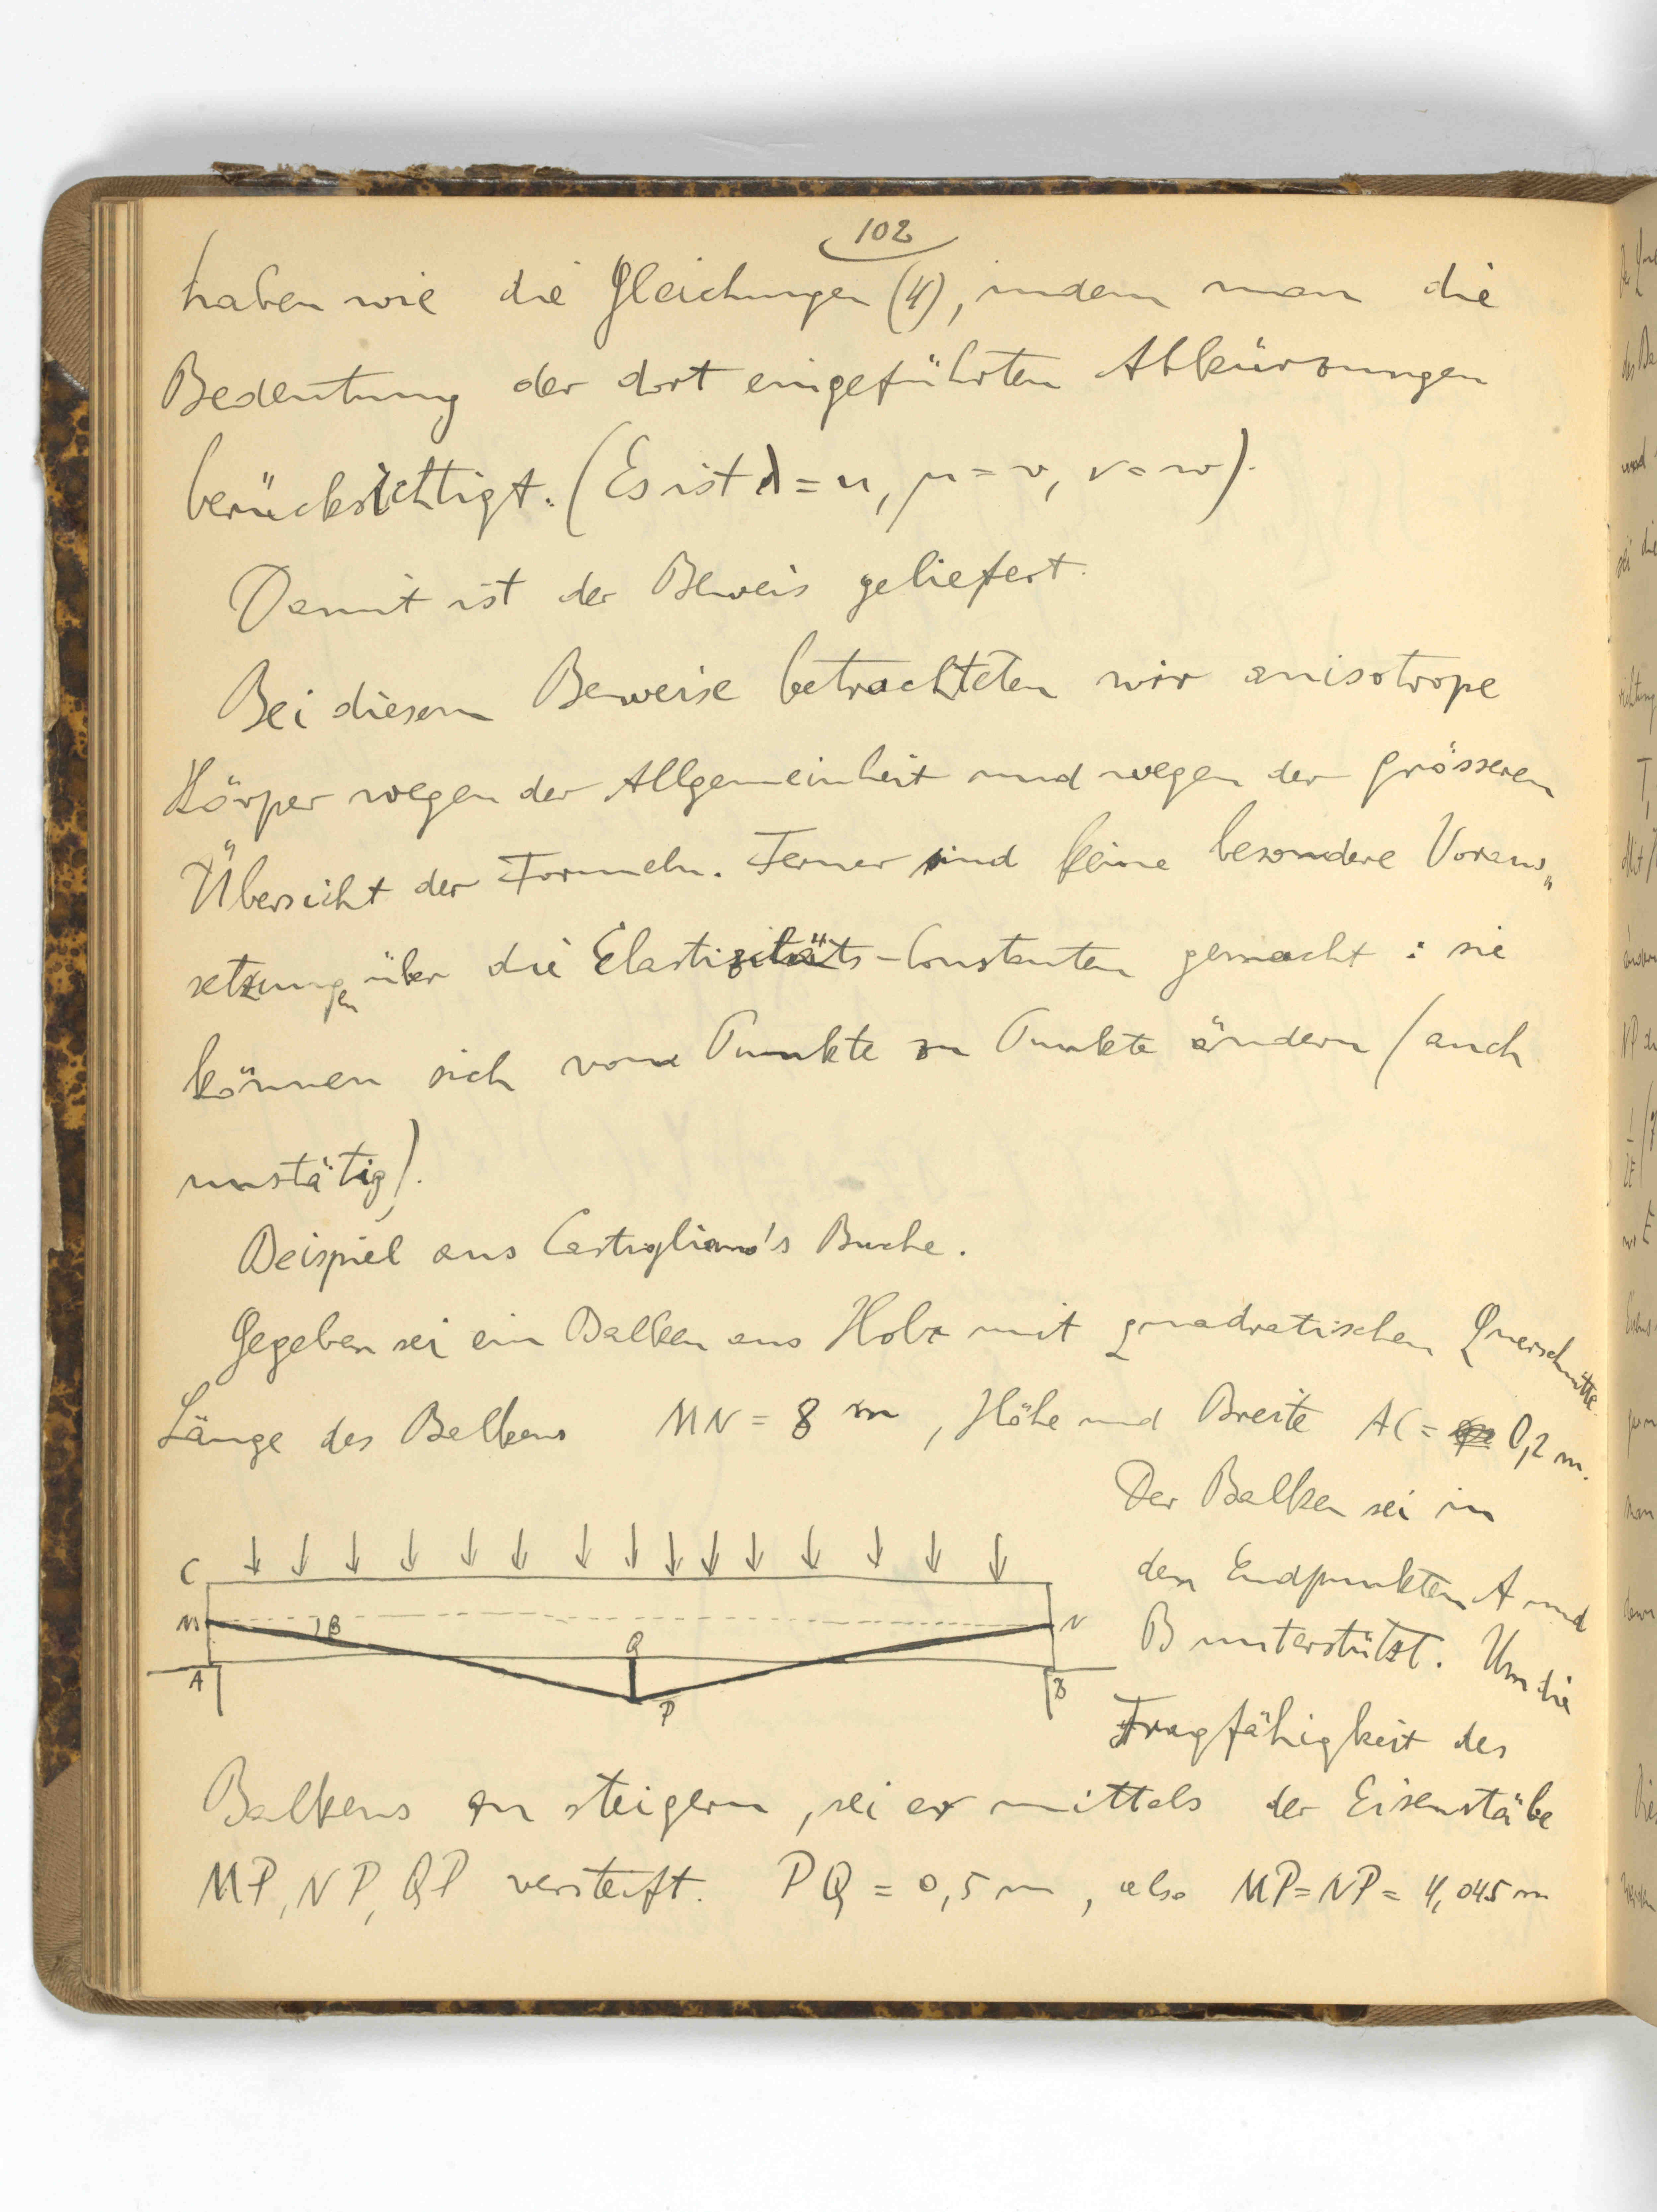 102
haben wie die Gleichungen (4), indem man die
Bedeutung der dort eingeführten Abkürzungen
berücksichtigt. (Es ist λ = u, μ = v, ν = w).
Damit ist der Beweis geliefert.
Bei diesem Beweise betrachteten wir anisotrope
Körper wegen der Allgemeinheit und wegen der grösseren
Übersicht der Formeln. Ferner sind keine besondere Voraus„
setzungen über die Elastizitäts-Constanten gemacht: sie
können sich vom Punkte zu Punkte ändern (auch
unstätig).
Beispiel aus Castigliano's Buche.
Gegeben sei ein Balken aus Holz mit quadratischen Querschnitte.
Länge des Balkens MN = 8 m, Höhe und Breite AC = 0,2 m.
Der Balken sei in
den Endpunkten A und
B unterstützt. Um die
Tragfähigkeit des
C
M
β
Q
N
A
P
B
Balkens zu steigern, sei er mittels der Eisenstäbe
MP, NP, QP versteift. PQ = 0,5 m, also MP = NP = 4,045 m